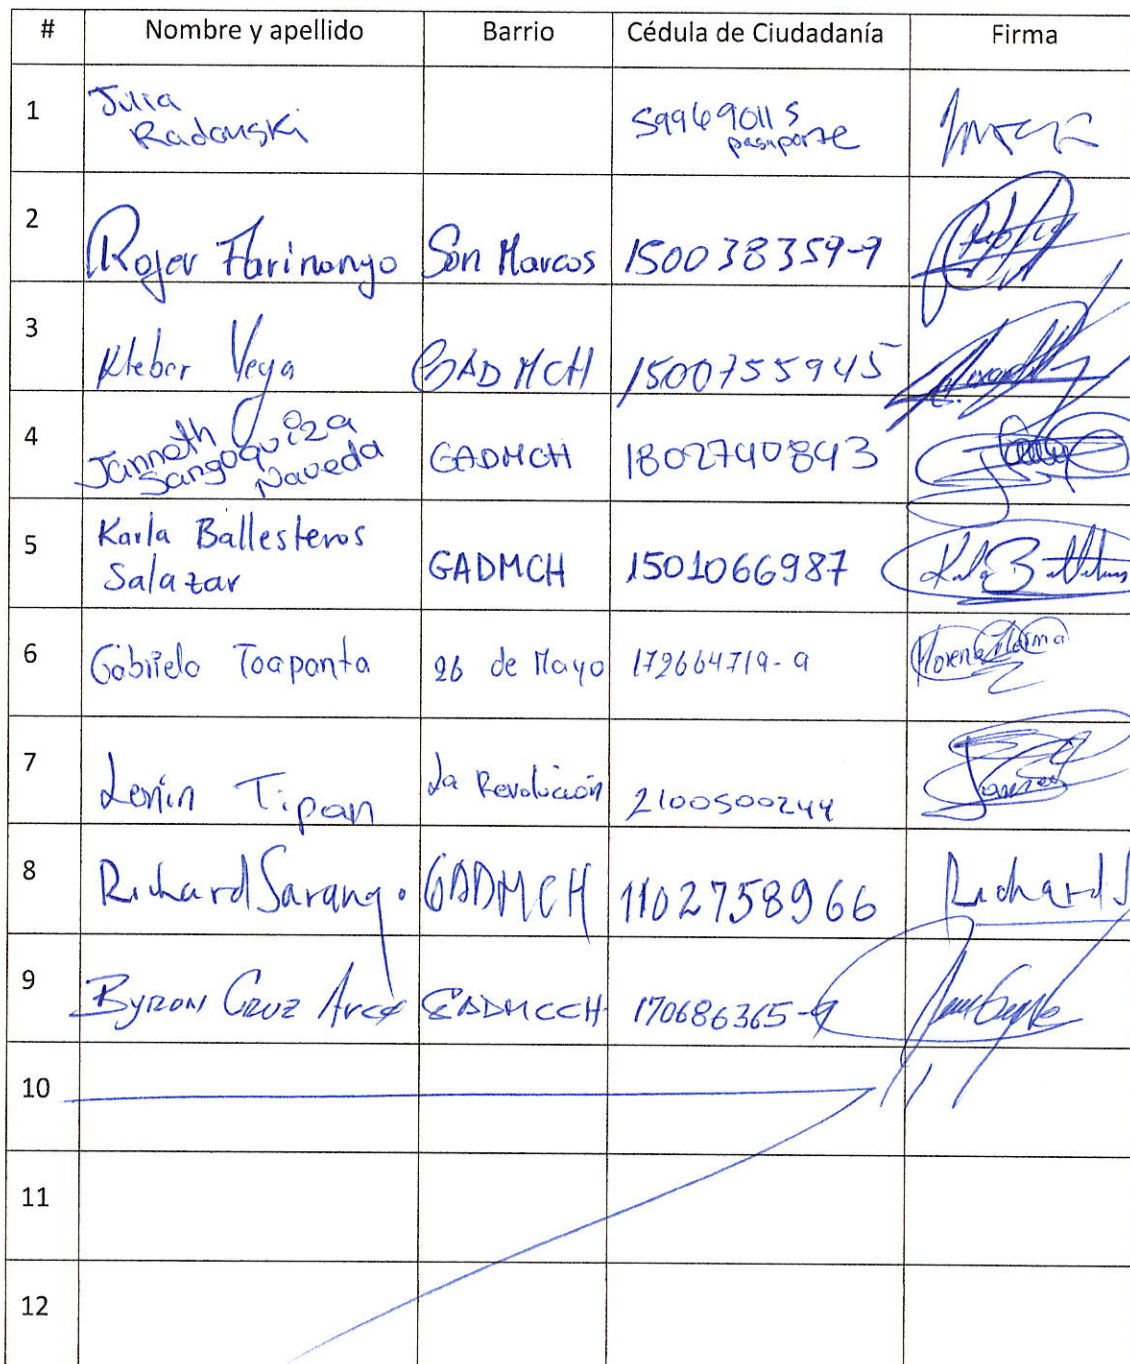 # Nombre y apellido Barrio Cédula de Ciudadanía Firma
1 Julia
Radomski 599690115
pasaporte
2 Roger Farinango San Marcos 150038359-9
3 Kleber Vega GADMCH 1500755945
4 Janneth
Sangoquiza
Naveda GADMCH 1802740843
5 Karla Ballesteros
Salazar GADMCH 1501066987
6 Gabriela Toaponta 26 de Mayo 172664719-9
7 Lenin Tipan La Revolución 2100500244
8 Richard Sarango GADMCH 1102758966 Richard S
9 Byron Cruz Arce GADMCCH 170686365-9
10
11
12